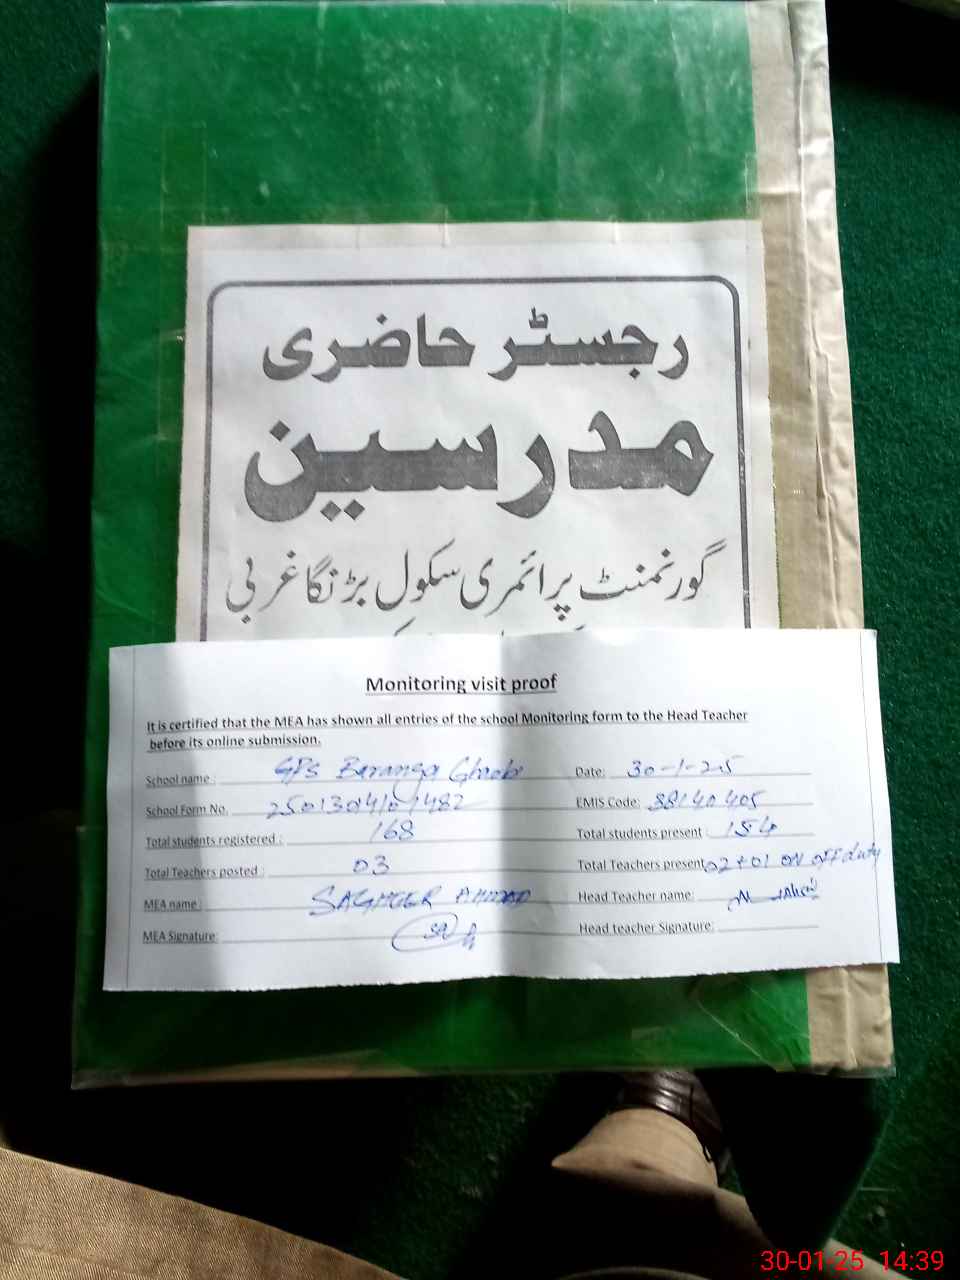 رجسٹر حاضری
مدرسین
گورنمنٹ پرائمری سکول بڑنگا غربی
Monitoring visit proof
It is certified that the MEA has shown all entries of the school Monitoring form to the Head Teacher
before its online submission.
School name: GPS Baranga Gharbi Date: 30-1-25
School Form No. 2501304101482 EMIS Code: 38140405
Total students registered: 168 Total students present: 154
Total Teachers posted: 03 Total Teachers present 02+01 ON OFF duty
MEA name: SAGHEER AHMAD Head Teacher name:
MEA Signature: Head teacher Signature:
30-01-25 14:39